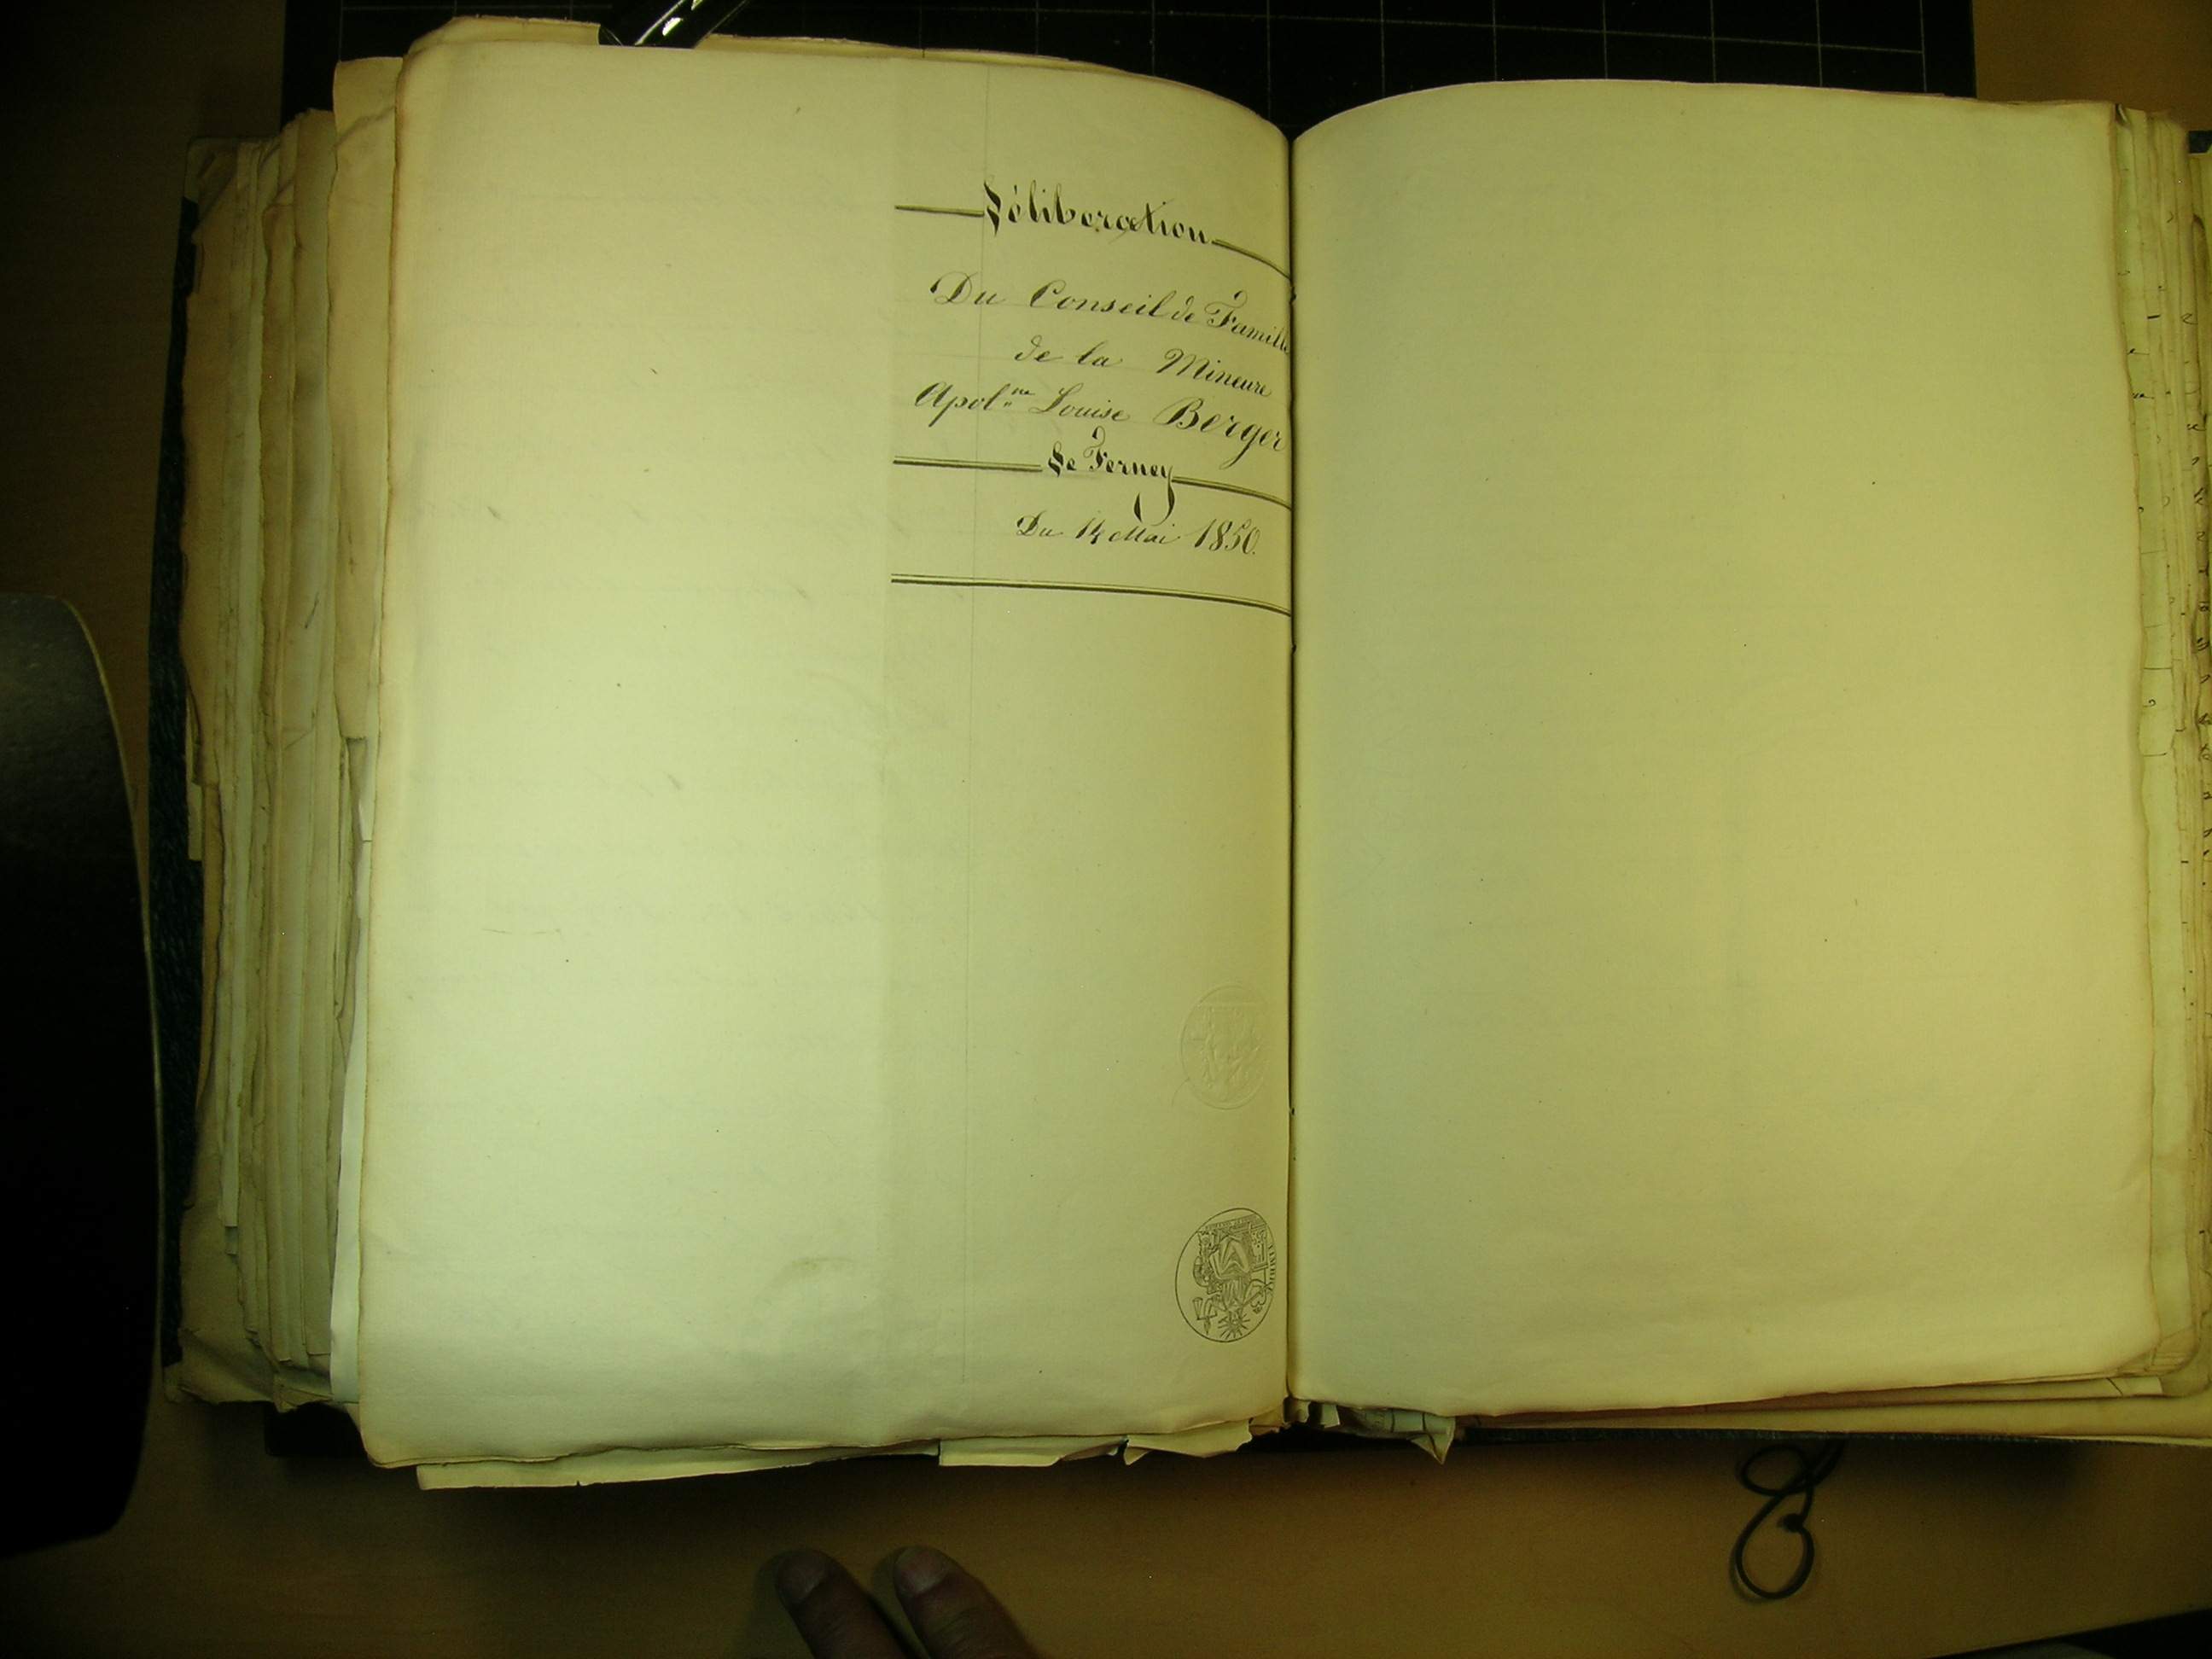 Déliberation
Du Conseil de Famille
de la Mineure
Apol.ne Louise Berger
De Ferney
Du 14 Mai 1850.